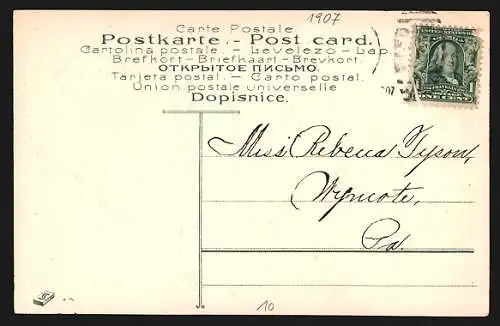 1907
Carte Postale.
Postkarte. - Post card.
Cartolina postale. - Levelezo - Lap.
Brefkort - Briefkaart - Brevkort.
ОТКРЫТОЕ ПИСЬМО.
Tarjeta postal. - Carto postal.
Union postale universelle
Dopisnice.
07
Miss Rebecca Tyson,
Wyncote,
Pa.
10